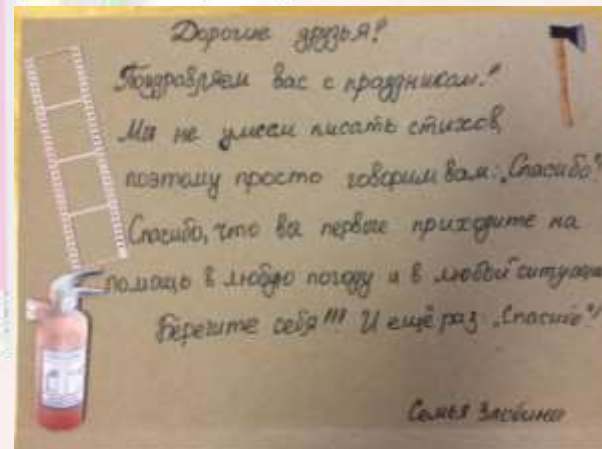 Дорогие друзья!
Поздравляем вас с праздником!
Мы не умеем писать стихов,
поэтому просто говорим вам: „Спасибо"!
Спасибо, что вы первые приходите на
помощь в любую погоду и в любой ситуации
Берегите себя!!! И ещё раз „Спасибо"!
Семья Злобина